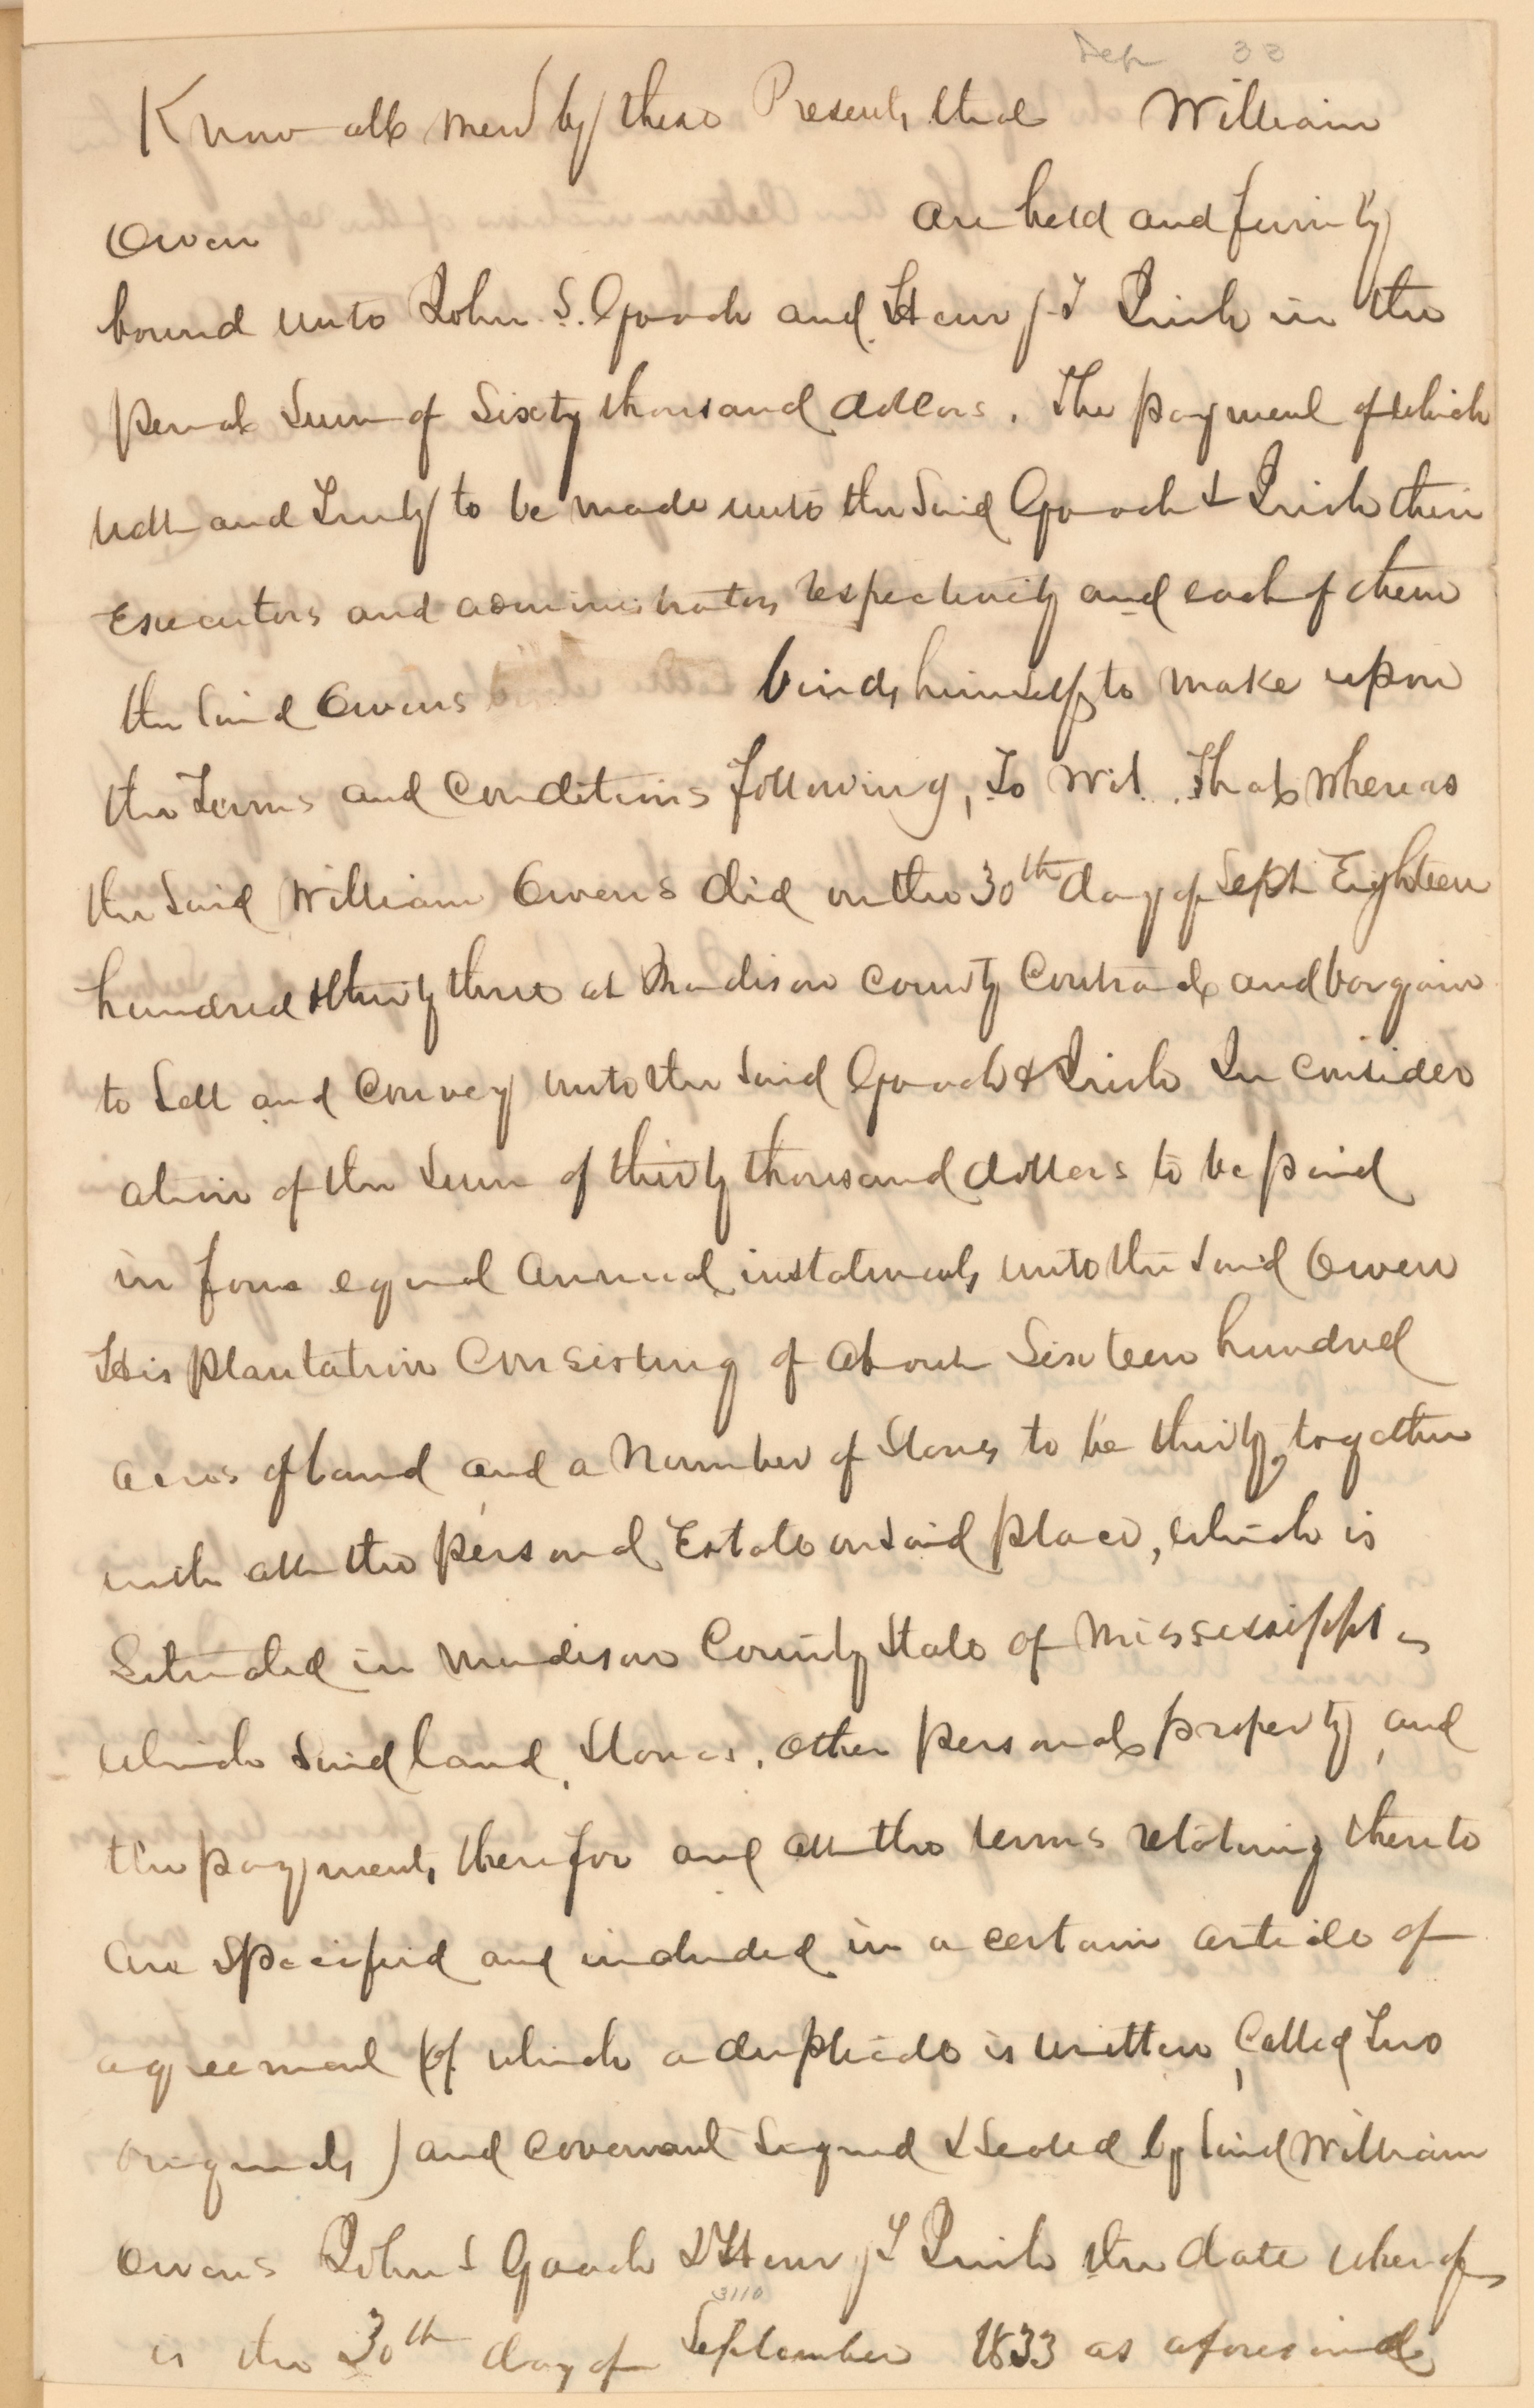 Sep 33
Know all men by these Presents that William
Owen are held and firmly
bound unto John S. Gooch and Henry T Irish in the
penal Sum of Sixty thousand dollars. The payment of which
well and Truly to be made unto the Said Gooch & Irish their
Executors and administrators respectively and each of them
the Said Owens binds himself to make upon
the Terms and Conditions following, To Wit. That Whereas
the Said William Owens did on the 30th day of Sept Eighteen
hundred & thirty three at Madison County Contract and bargain
to Sell and Convey unto the Said Gooch & Irish In consider
ation of the Sum of thirty thousand dollars to be paid
in four equal annual instalments unto the Said Owen
His plantation Consisting of about Sixteen hundred
acres of land and a Number of Slaves to be thirty, together
with all the personal Estate on Said place, which is
Situated in Madison County State of Mississippi
which Said land, Slaves, other personal property, and
the payments therefor and all the terms relating thereto
are specified and included in a certain article of
agreement (of which a duplicate is written, Called Two
originals) and covenant Signed & Sealed by Said William
Owens John S Gooch & Henry T Irish the date whereof
3110
is the 30th day of September 1833 as aforesaid